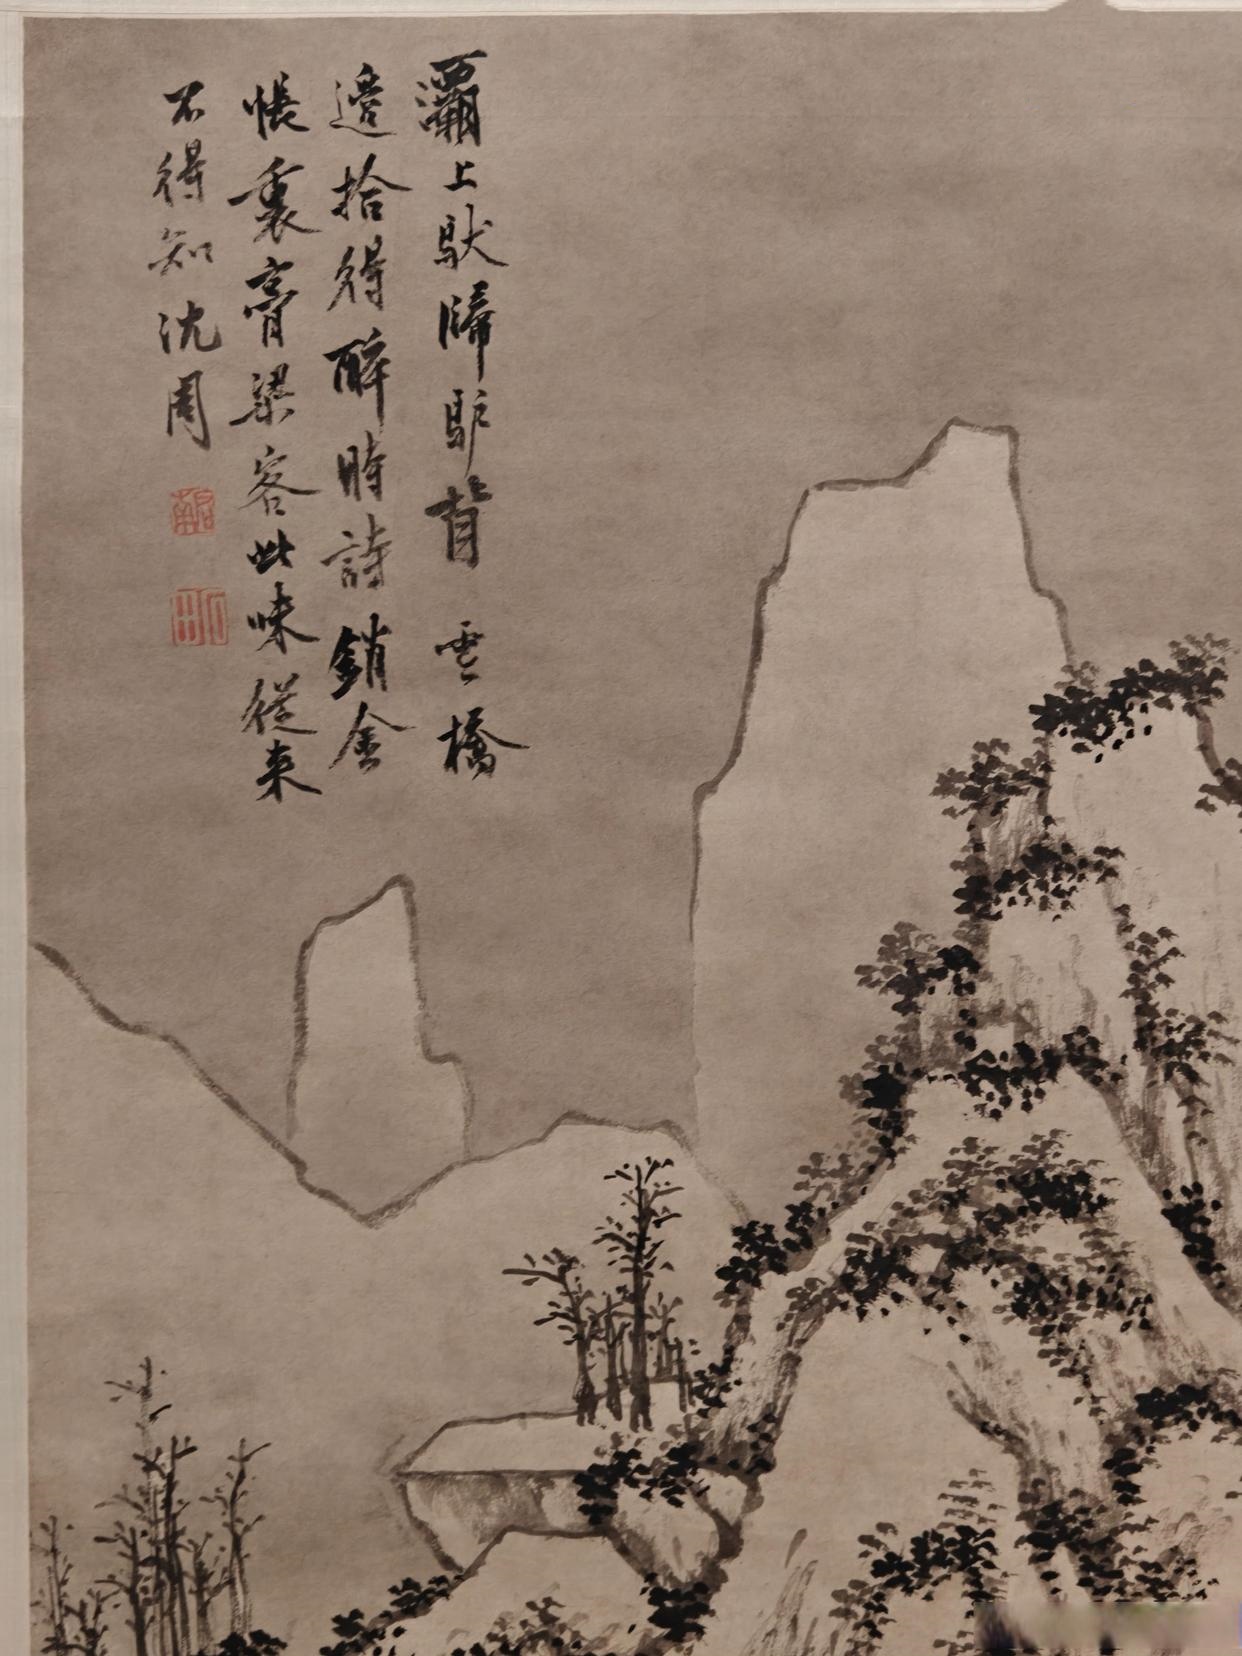 灞上䭾歸驴背雪橋
邊拾得醉時詩銷金
帳裏膏粱客此味從来
不得知沈周
啟南